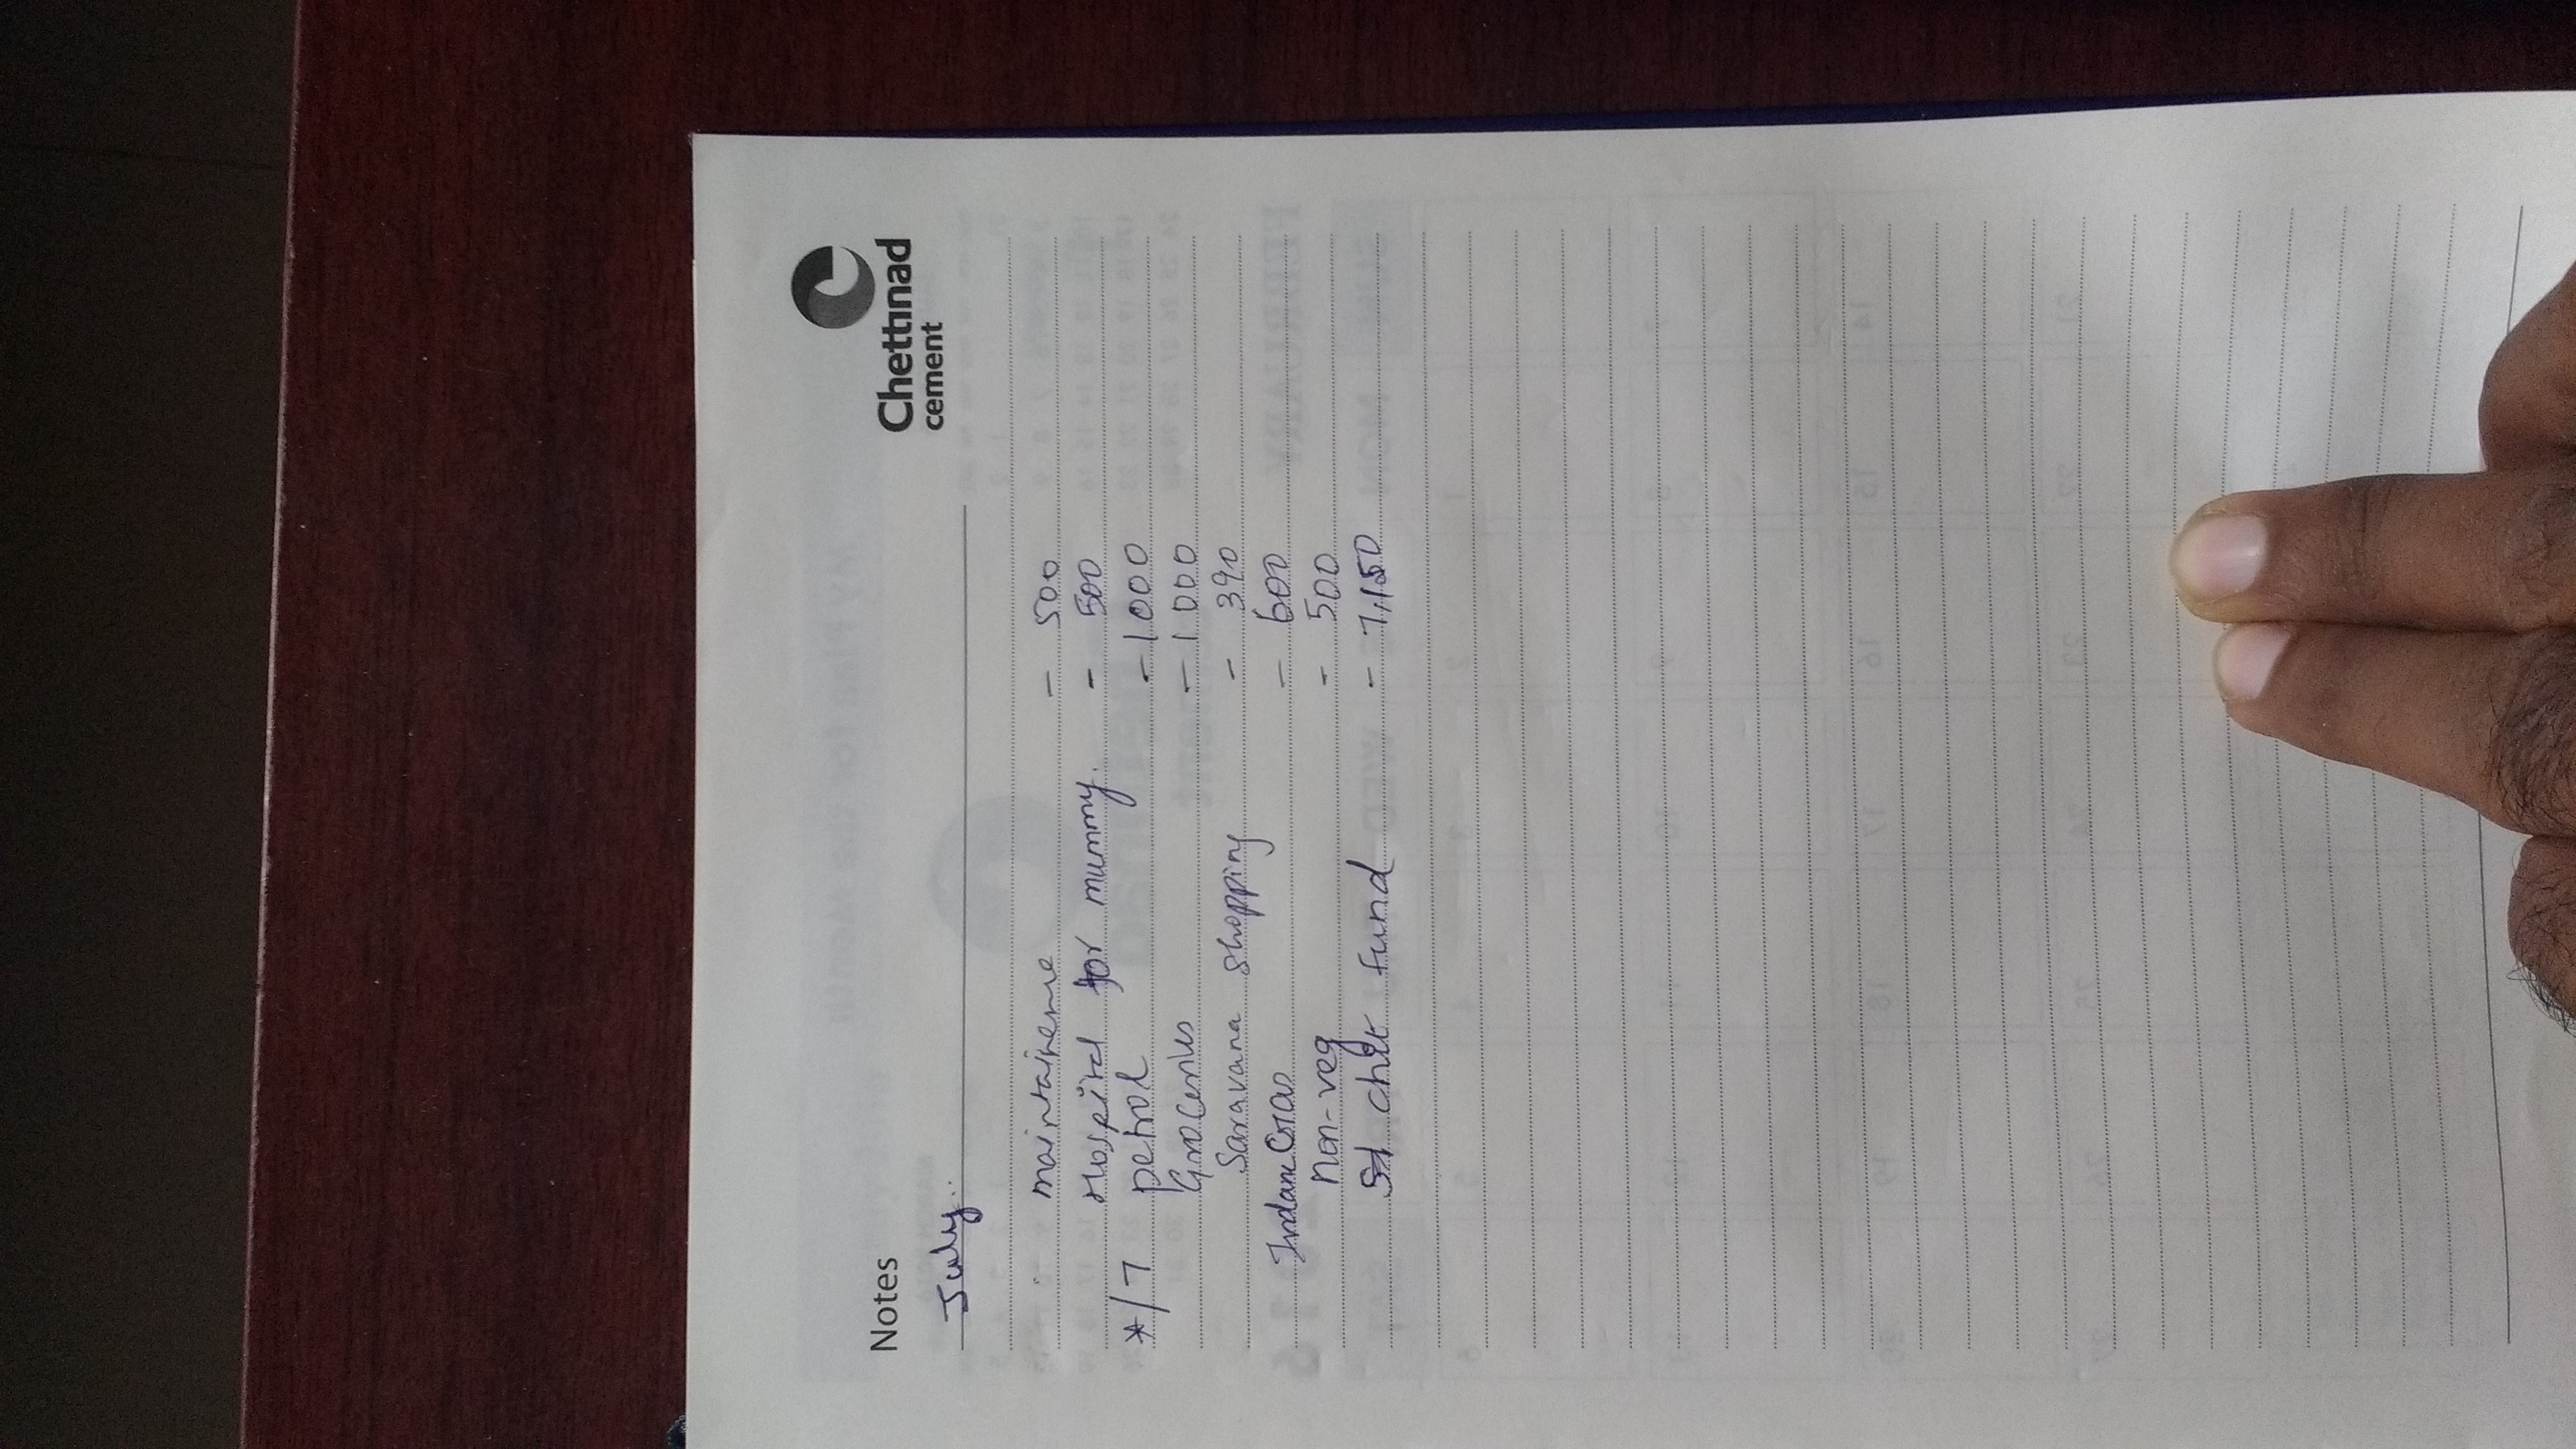 Notes
Chettinad
cement
July.
maintainence - 500
Hospital for mummy. - 500
*/7 petrol - 1000
Groceries - 1000
Saravana shopping - 390
Indane Gas - 600
Non-veg - 500
chit fund - 7,150